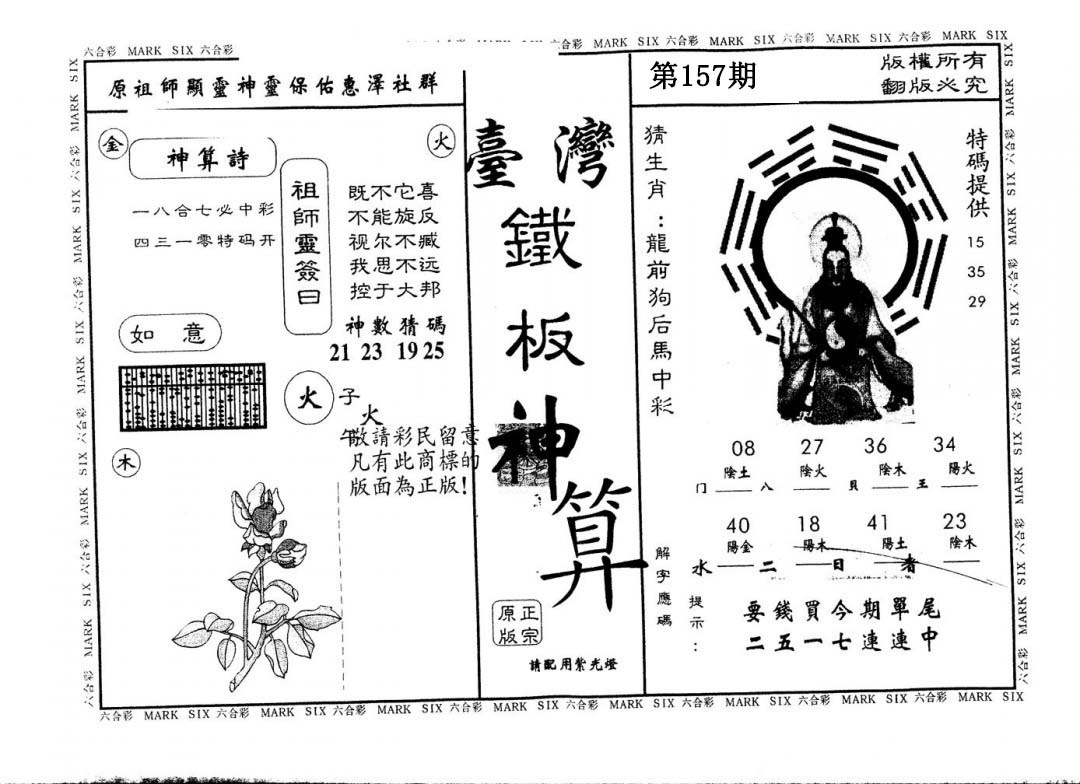 六合彩 MARK SIX 六合彩
六合彩 MARK SIX 六合彩 MARK SIX 六合彩 MARK SIX 六合彩 MARK SIX
原祖師顯靈神靈保佑惠澤社群
金
火
神算詩
一八合七必中彩
四三一零特码开
祖師靈簽曰
既不它喜
不能旋反
视尔不臧
我思不远
控于大邦
神數猜碼
21 23 19 25
如意
火
子
火
午
敬請彩民留意
凡有此商標的
版面為正版!
木
臺灣
鐵
板
神
算
正宗
原版
請配用紫光燈
第157期
版權所有
翻版必究
猜生肖:龍前狗后馬中彩
特碼提供
15
35
29
08 27 36 34
陰土 陰火 陰木 陽火
门 八 貝 王
40 18 41 23
陽金 陽木 陽土 陰木
水 二 日 者
解字應碼
提示:
要錢買今期單尾
二五一七連連中
六合彩 MARK SIX 六合彩 MARK SIX 六合彩 MARK SIX 六合彩 MARK SIX 六合彩 MARK SIX 六合彩 MARK SIX 六合彩 MARK SIX 六合彩 MARK SIX